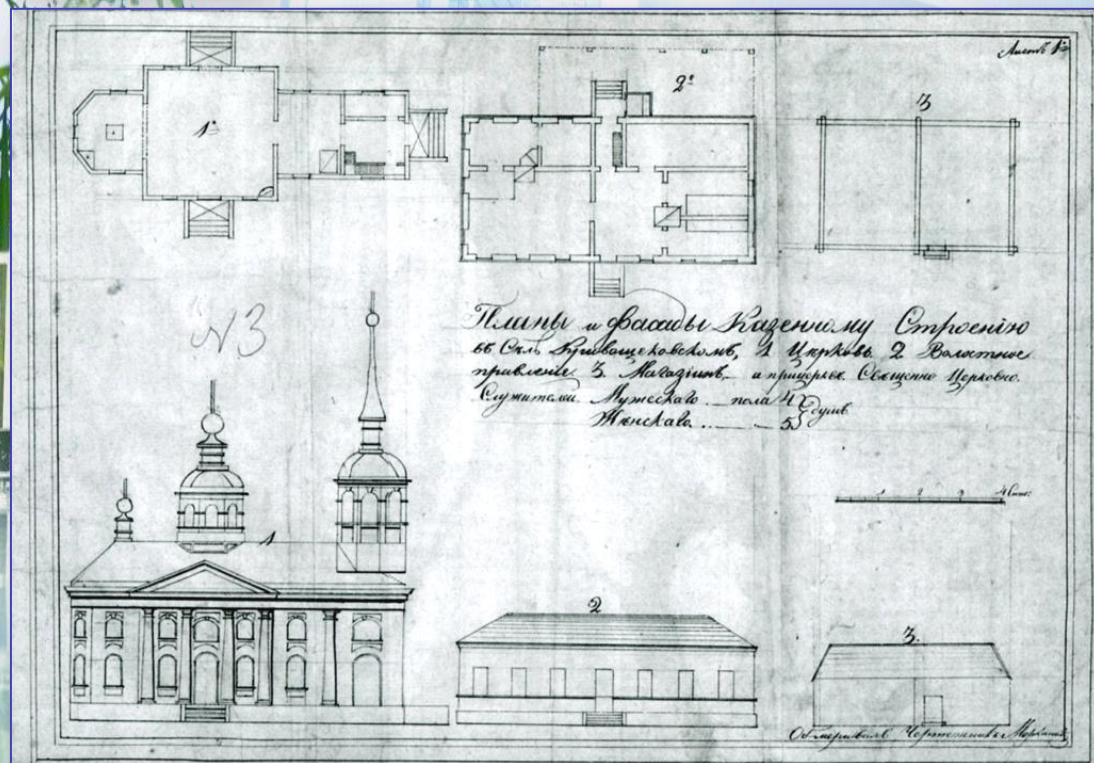 Листъ 1й
1й
2й
3
№3
Планы и фасады Казенному Строенію
въ Селѣ Кривощековскомъ, 1 Церковь 2 Волостное
правленіе 3. Магазинъ, и при церкве Священно Церковно.
Служителей Мужескаго пола 4 душъ
Женскаго 5
1 2 3 4 Саж:
1
2
3.
Обмеривалъ Чертежникъ